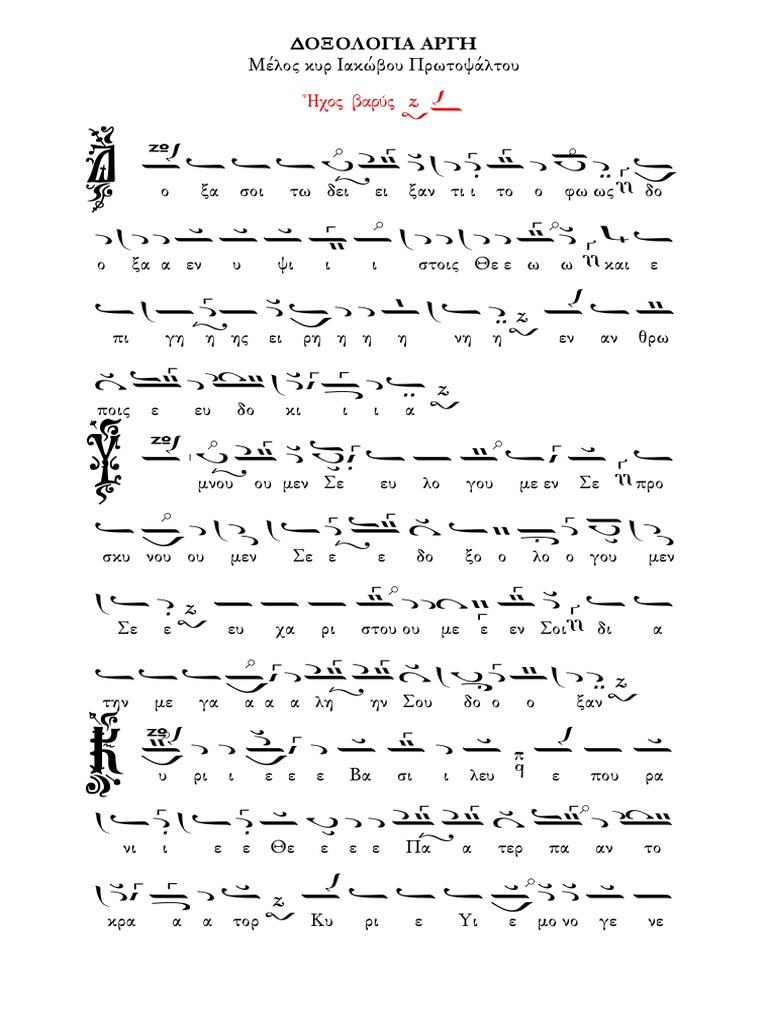 ΔΟΞΟΛΟΓΙΑ ΑΡΓΗ
Μέλος κυρ Ιακώβου Πρωτοψάλτου
Ἦχος βαρύς
Δ ο ξα σοι τω δει ει ξαν τι ι το ο φω ως δο
ο ξα α εν υ ψι ι ι στοις Θε ε ω ω και ε
πι γη η ης ει ρη η η η νη η εν αν θρω
ποις ε ευ δο κι ι ι α
Υ μνου ου μεν Σε ευ λο γου με εν Σε προ
σκυ νου ου μεν Σε ε ε δο ξο ο λο ο γου μεν
Σε ε ευ χα ρι στου ου με ε εν Σοι δι α
την με γα α α α λη ην Σου δο ο ο ξαν
Κ υ ρι ι ε ε ε Βα σι ι λευ ε που ρα
νι ι ε ε Θε ε ε ε Πα α τερ πα αν το
κρα α α τορ Κυ ρι ε Υι ε μο νο γε νε